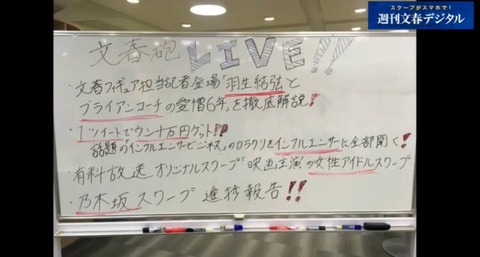 スクープがスマホで!
週刊文春デジタル
文春砲 LIVE!!
・文春フィギュア担当記者登場「羽生結弦と
ブライアンコーチの愛憎6年」を徹底解説!
・1ツイートでウン十万円ゲット!?
話題の「インフルエンサービジネス」のカラクリをインフルエンサーに全部聞く!
有料放送 オリジナルスクープ「映画主演」の女性アイドルスクープ
・乃木坂スクープ 進捗報告!!